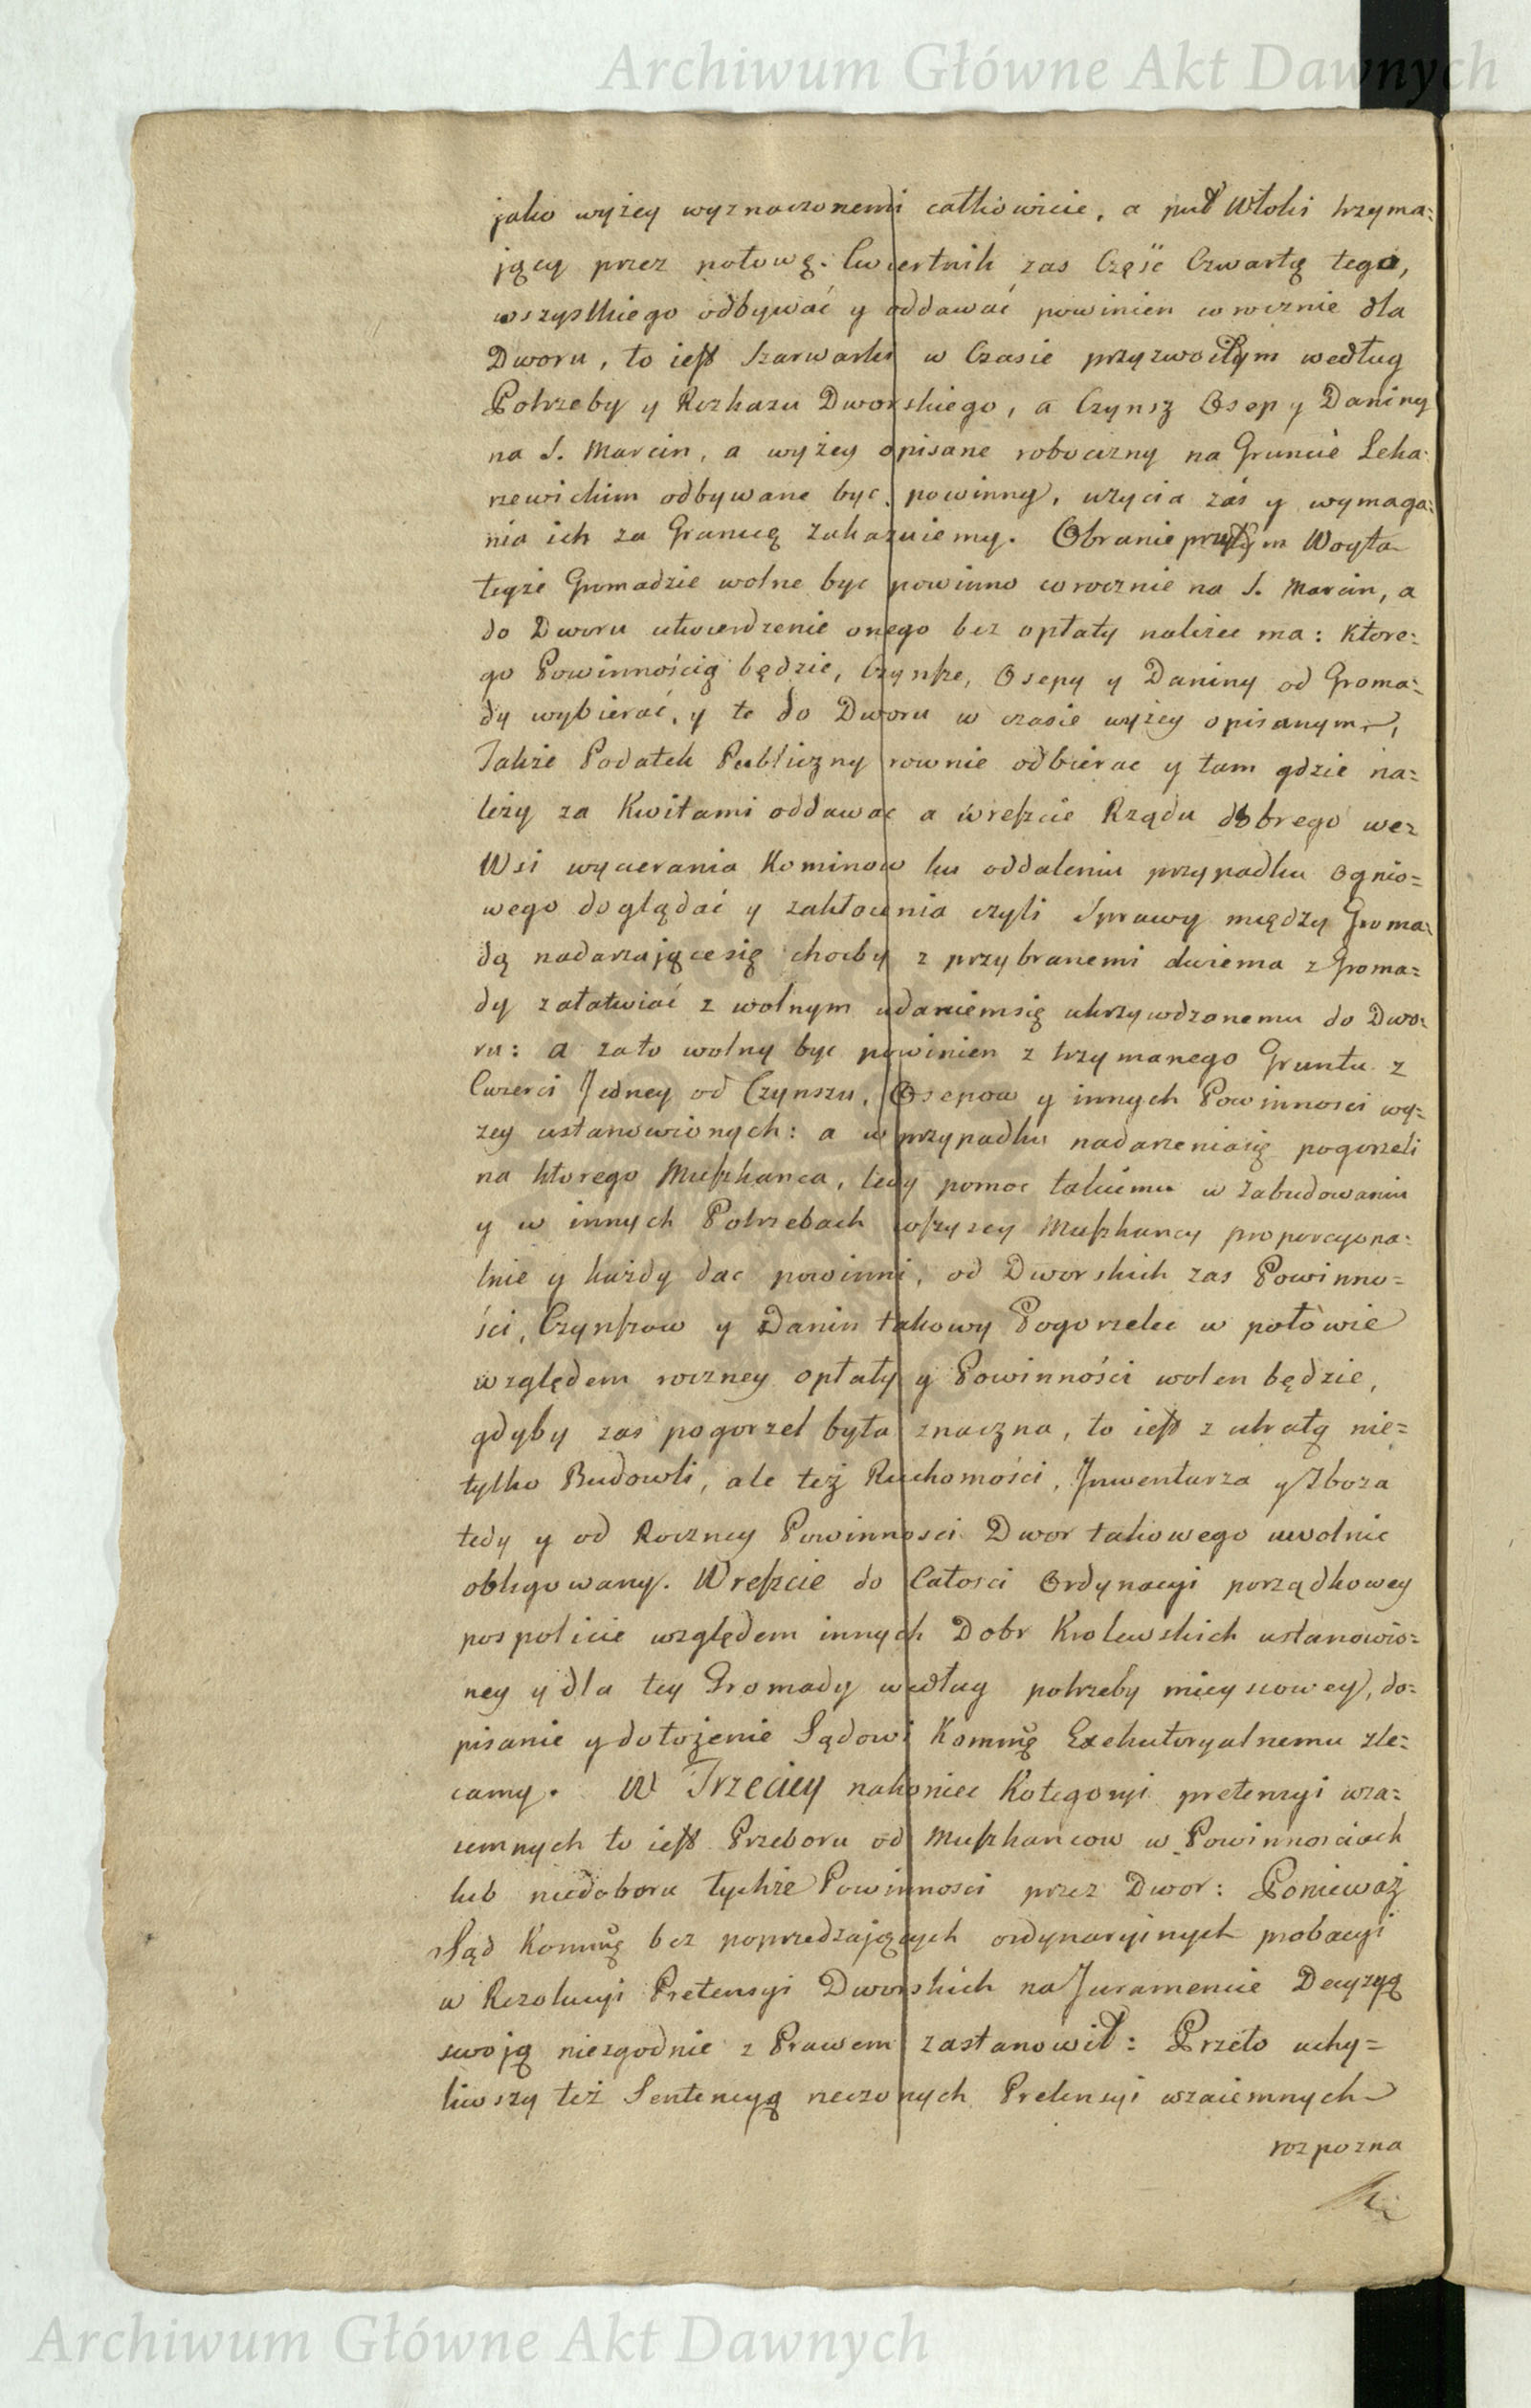 Archiwum Główne Akt Dawnych
jako wyżey wyznaczonemi całkowicie, a puł Włoki trzyma=
jący przez połowę. Cwiertnik zas Część Czwartą tego,
wszystkiego odbywać y oddawać powinien corocznie dla
Dworu, to iest Szarwarki w Czasie przyzwoitym według
Potrzeby y Rozkazu Dworskiego, a Czynsz Osep y Daniny
na S. Marcin, a wyżey opisane robocizny na Gruncie Leka=
rzewickim odbywane byc powinny, uzycia zaś y wymaga=
nia ich za Granicę zakazuiemy. Obranie przytym Woyta
teyże Gromadzie wolne byc powinno corocznie na S. Marcin, a
do Dworu utwierdzenie onego bez opłaty należec ma: Ktore=
go Powinnością będzie, Czynsze, Osepy y Daniny od Groma=
dy wybierać, y te do Dworu w czasie wyżey opisanym,
Także Podatek Publiczny rownie odbierac y tam gdzie na=
leży za Kwitami oddawac a wreszcie Rządu dobrego we=
Wsi wycierania Kominow ku oddaleniu przypadku ognio=
wego doglądać y zakłocenia czyli Sprawy między Groma=
dą nadarzające się chocby z przybranemi dwiema z Groma=
dy załatwiać z wolnym udaniem się ukrzywdzonemu do Dwo=
ru: a zato wolny byc powinien z trzymanego Gruntu z
Cwierci Jedney od Czynszu, Osepow y innych Powinnosci wy=
zey ustanowionych: a w przypadku nadarzenia się pogorzeli
na ktorego Mieszkanca, tedy pomoc takiemu w zabudowaniu
y w innych Potrzebach wszyscy Mieszkancy proporcyona=
lnie y każdy dac powinni, od Dworskich zas Powinno=
ści, Czynszow y Danin takowy Pogorzelec w połowie
względem roczney opłaty y Powinności wolen będzie,
gdyby zas pogorzel była znaczna, to iest z utratą nie=
tylko Budowli, ale też Ruchomości, Jnwentarza y Zboza
tedy y od Roczney Powinnosci Dwor takowego uwolnic
obligowany. Wreszcie do Całosci Ordynacyi porządkowey
pospolicie względem innych Dobr Krolewskich ustanowio=
ney y dla tey Gromady według potrzeby mieyscowey, do=
pisanie y dołożenie Sądowi Kommis Exekutoryalnemu zle=
camy. W Trzeciey nakoniec Kategoryi pretensyi wza=
iemnych to iest Przeboru od Mieszkancow w Powinnosciach
lub niedoboru tychże Powinnosci przez Dwor: Ponieważ
Sąd Kommis bez poprzedzaiących ordynaryinych probacyi
w Rezolucyi Pretensyi Dworskich na Juramencie Decyzyą
swoją niezgodnie z Prawem zastanowił: Przeto uchy=
liwszy też Sentencyą rzeczonych Pretensyi wzaiemnych
rozpozna
Archiwum Główne Akt Dawnych